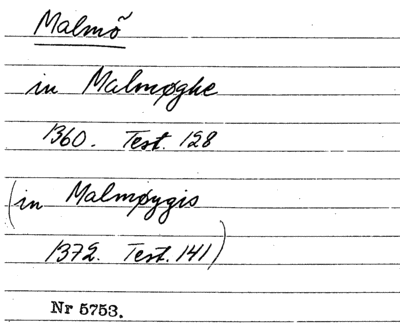 Malmö
in Malmøghe
1360. Test. 128
(in Malmøygis
1372. Test. 141)
Nr 5753.